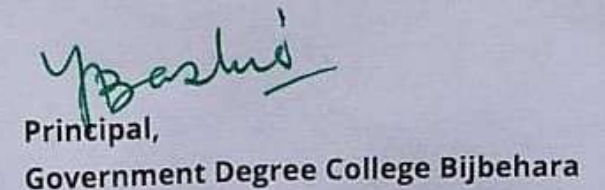 Principal,
Government Degree College Bijbehara